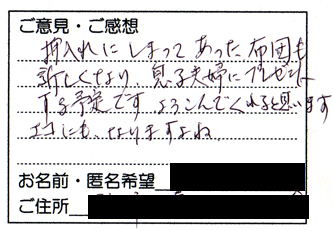 ご意見・ご感想
押入れにしまってあった布団も
新しくなり、息子夫婦にプレゼント
する予定です よろこんでくれると思います
エコにも、なりますよね。
お名前・匿名希望
ご住所